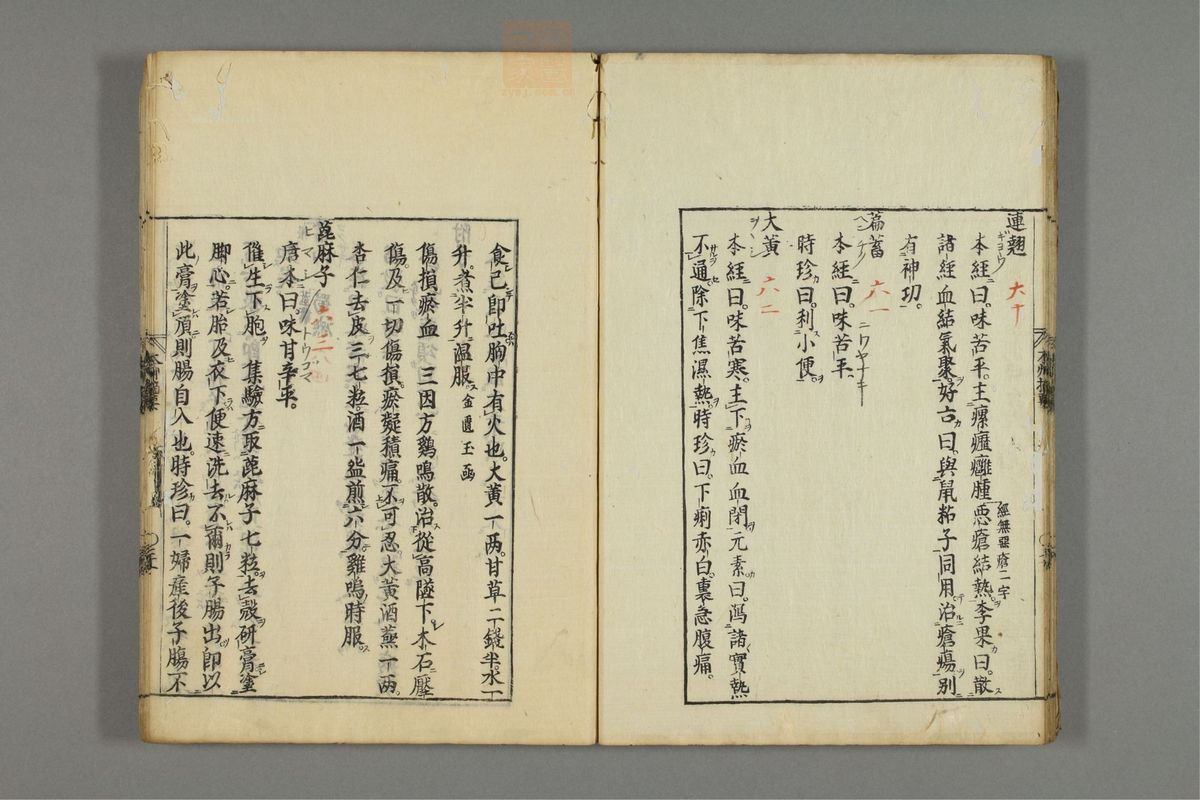 連翹
本經曰。味苦平。主瘰癧癰腫惡瘡結熱。李果曰。散
經無惡瘡二字
諸經血結氣聚。好古曰。與鼠粘子同用。治瘡瘍別
有神功。
萹蓄
本經曰。味苦平。
時珍曰。利小便。
大黃
本經曰。味苦寒。主下瘀血血閉。元素曰。瀉諸實熱
不通。除下焦濕熱。時珍曰。下痢赤白。裏急腹痛。
食已即吐。胸中有火也。大黃一兩。甘草二錢半。水一
升。煮半升。溫服。金匱玉函
傷損瘀血 三因方雞鳴散。治從高隧下木石壓
傷。及一切傷損。瘀凝積痛。不可忍。大黃酒蒸一兩。
杏仁去皮三七粒。酒一盌。煎六分。雞鳴時服。
蓖麻子
唐本曰。味甘辛平。
催生下胞 集驗方取蓖麻子七粒。去殼研膏塗
脚心。若胎及衣下。便速洗去。不爾則子腸出。即以
此膏塗頂。則腸自入也。時珍曰。一婦產後子腸不